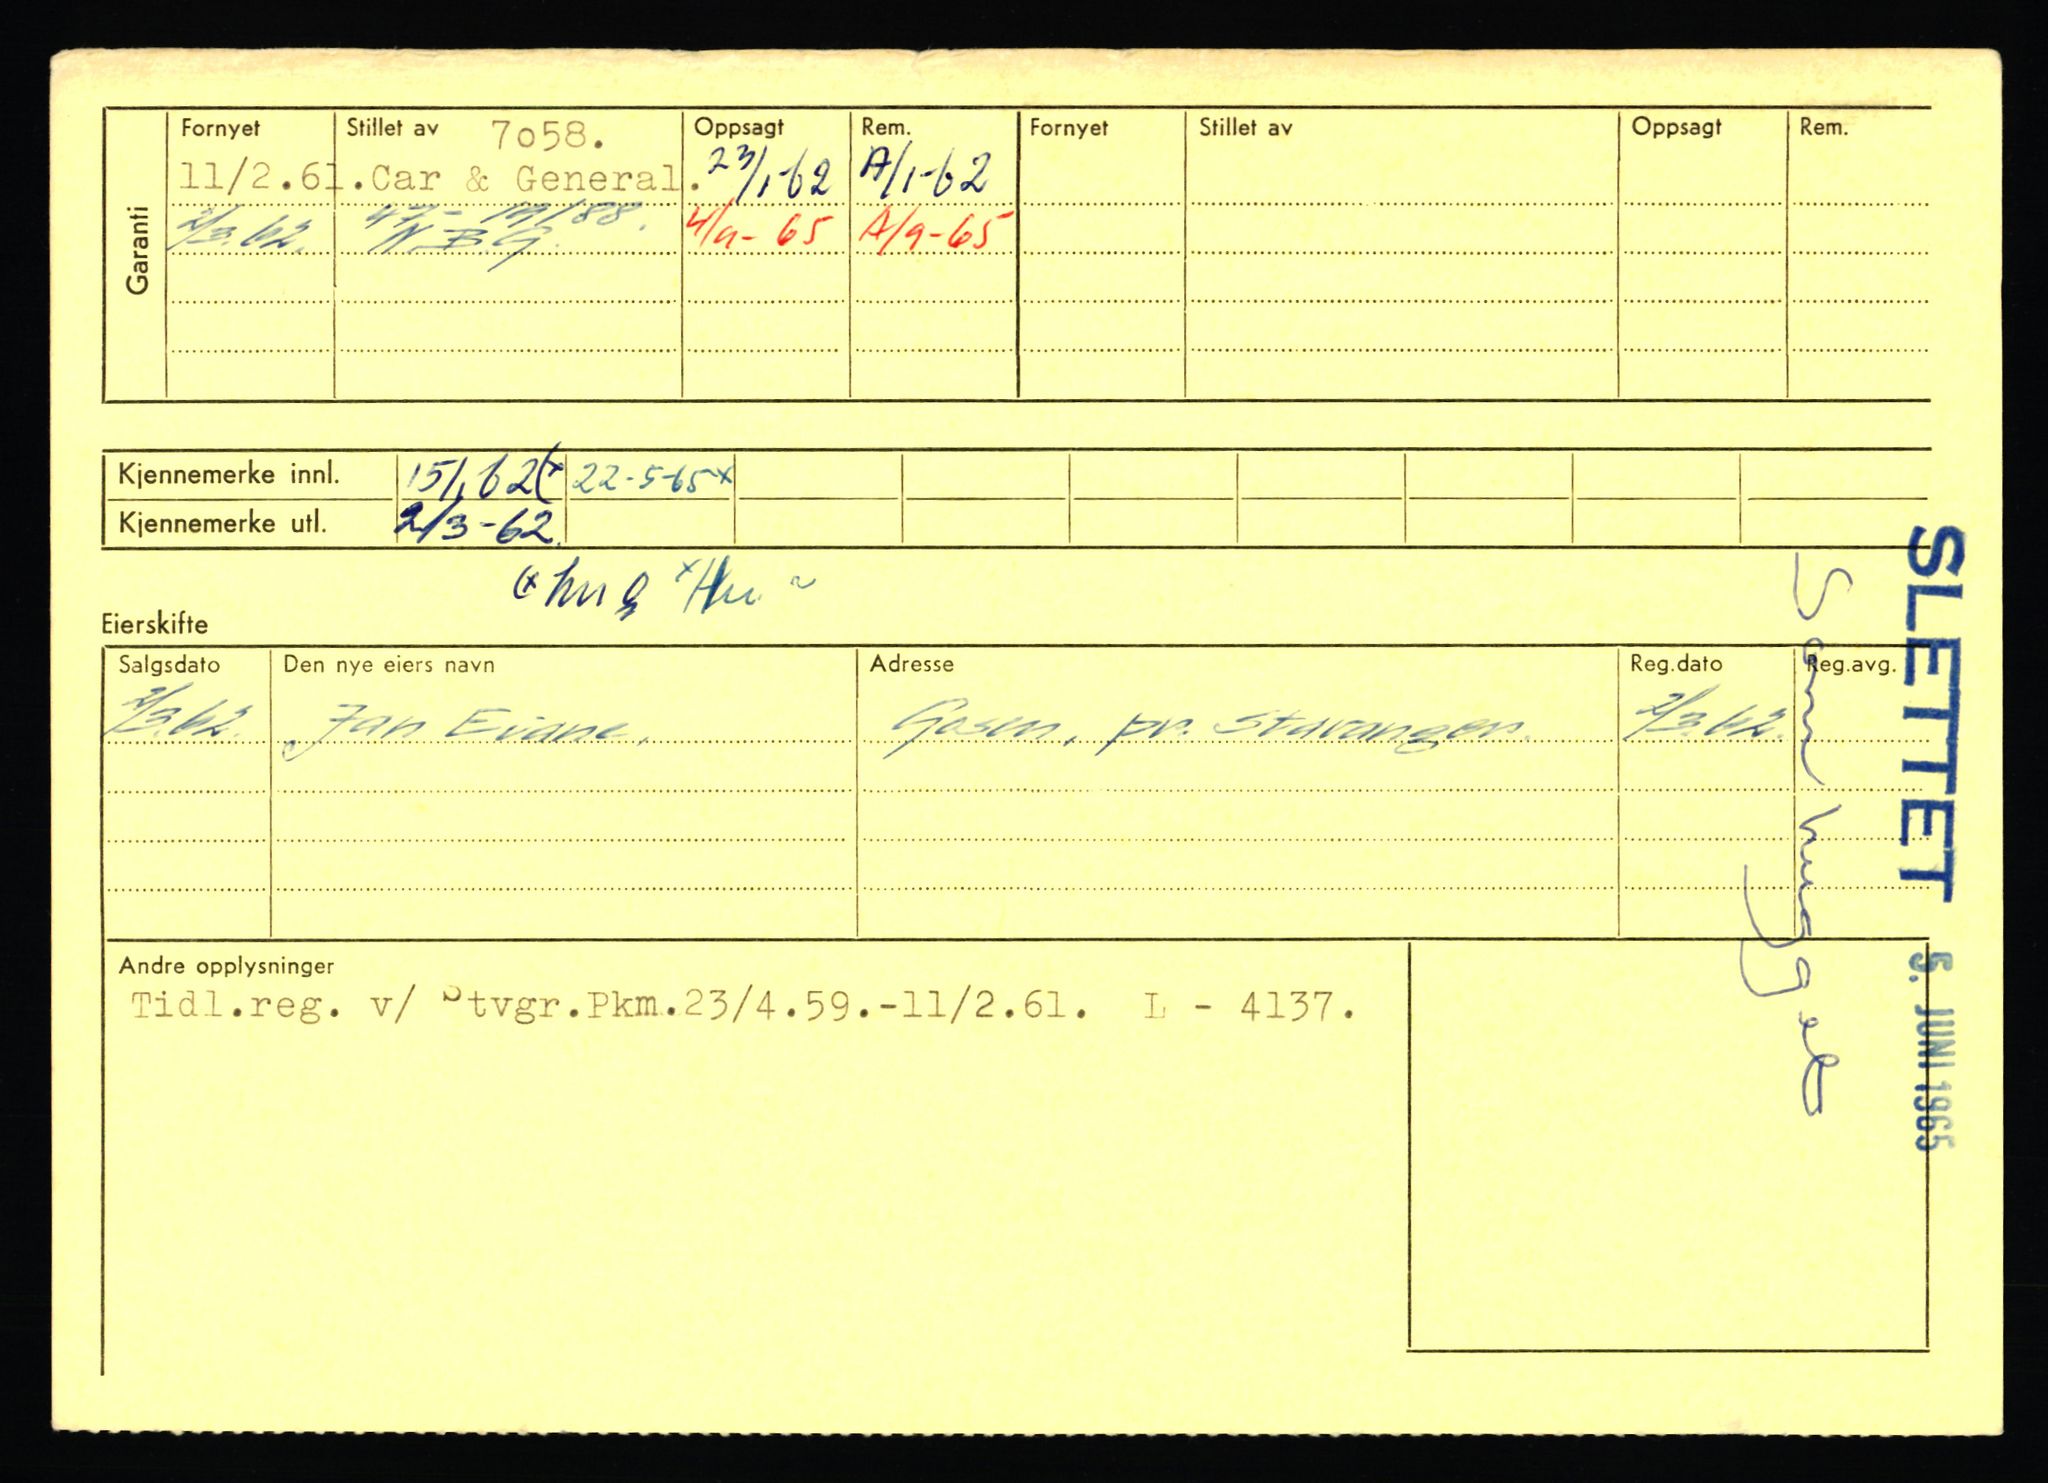 Garanti
Fornyet Stillet av 7o58. Oppsagt Rem. Fornyet Stillet av Oppsagt Rem.
11/2.61. Car & General. 23/1-62 A/1-62
2/3.62. N.B.G. 4/9-65 A/9-65
Kjennemerke innl. 15/1 62 (x 22-5-65 x
Kjennemerke utl. 2/3-62.
(x hugg x Hu
Eierskifte
Salgsdato Den nye eiers navn Adresse Reg.dato Reg.avg.
2/3.62. Jan Eiane, Gosen, pr. Stavanger. 2/3.62.
Andre opplysninger
Tidl.reg. v/ Stvgr.Pkm.23/4.59.-11/2.61. L - 4137.
SLETTET 5. JUNI 1965
Som hugget